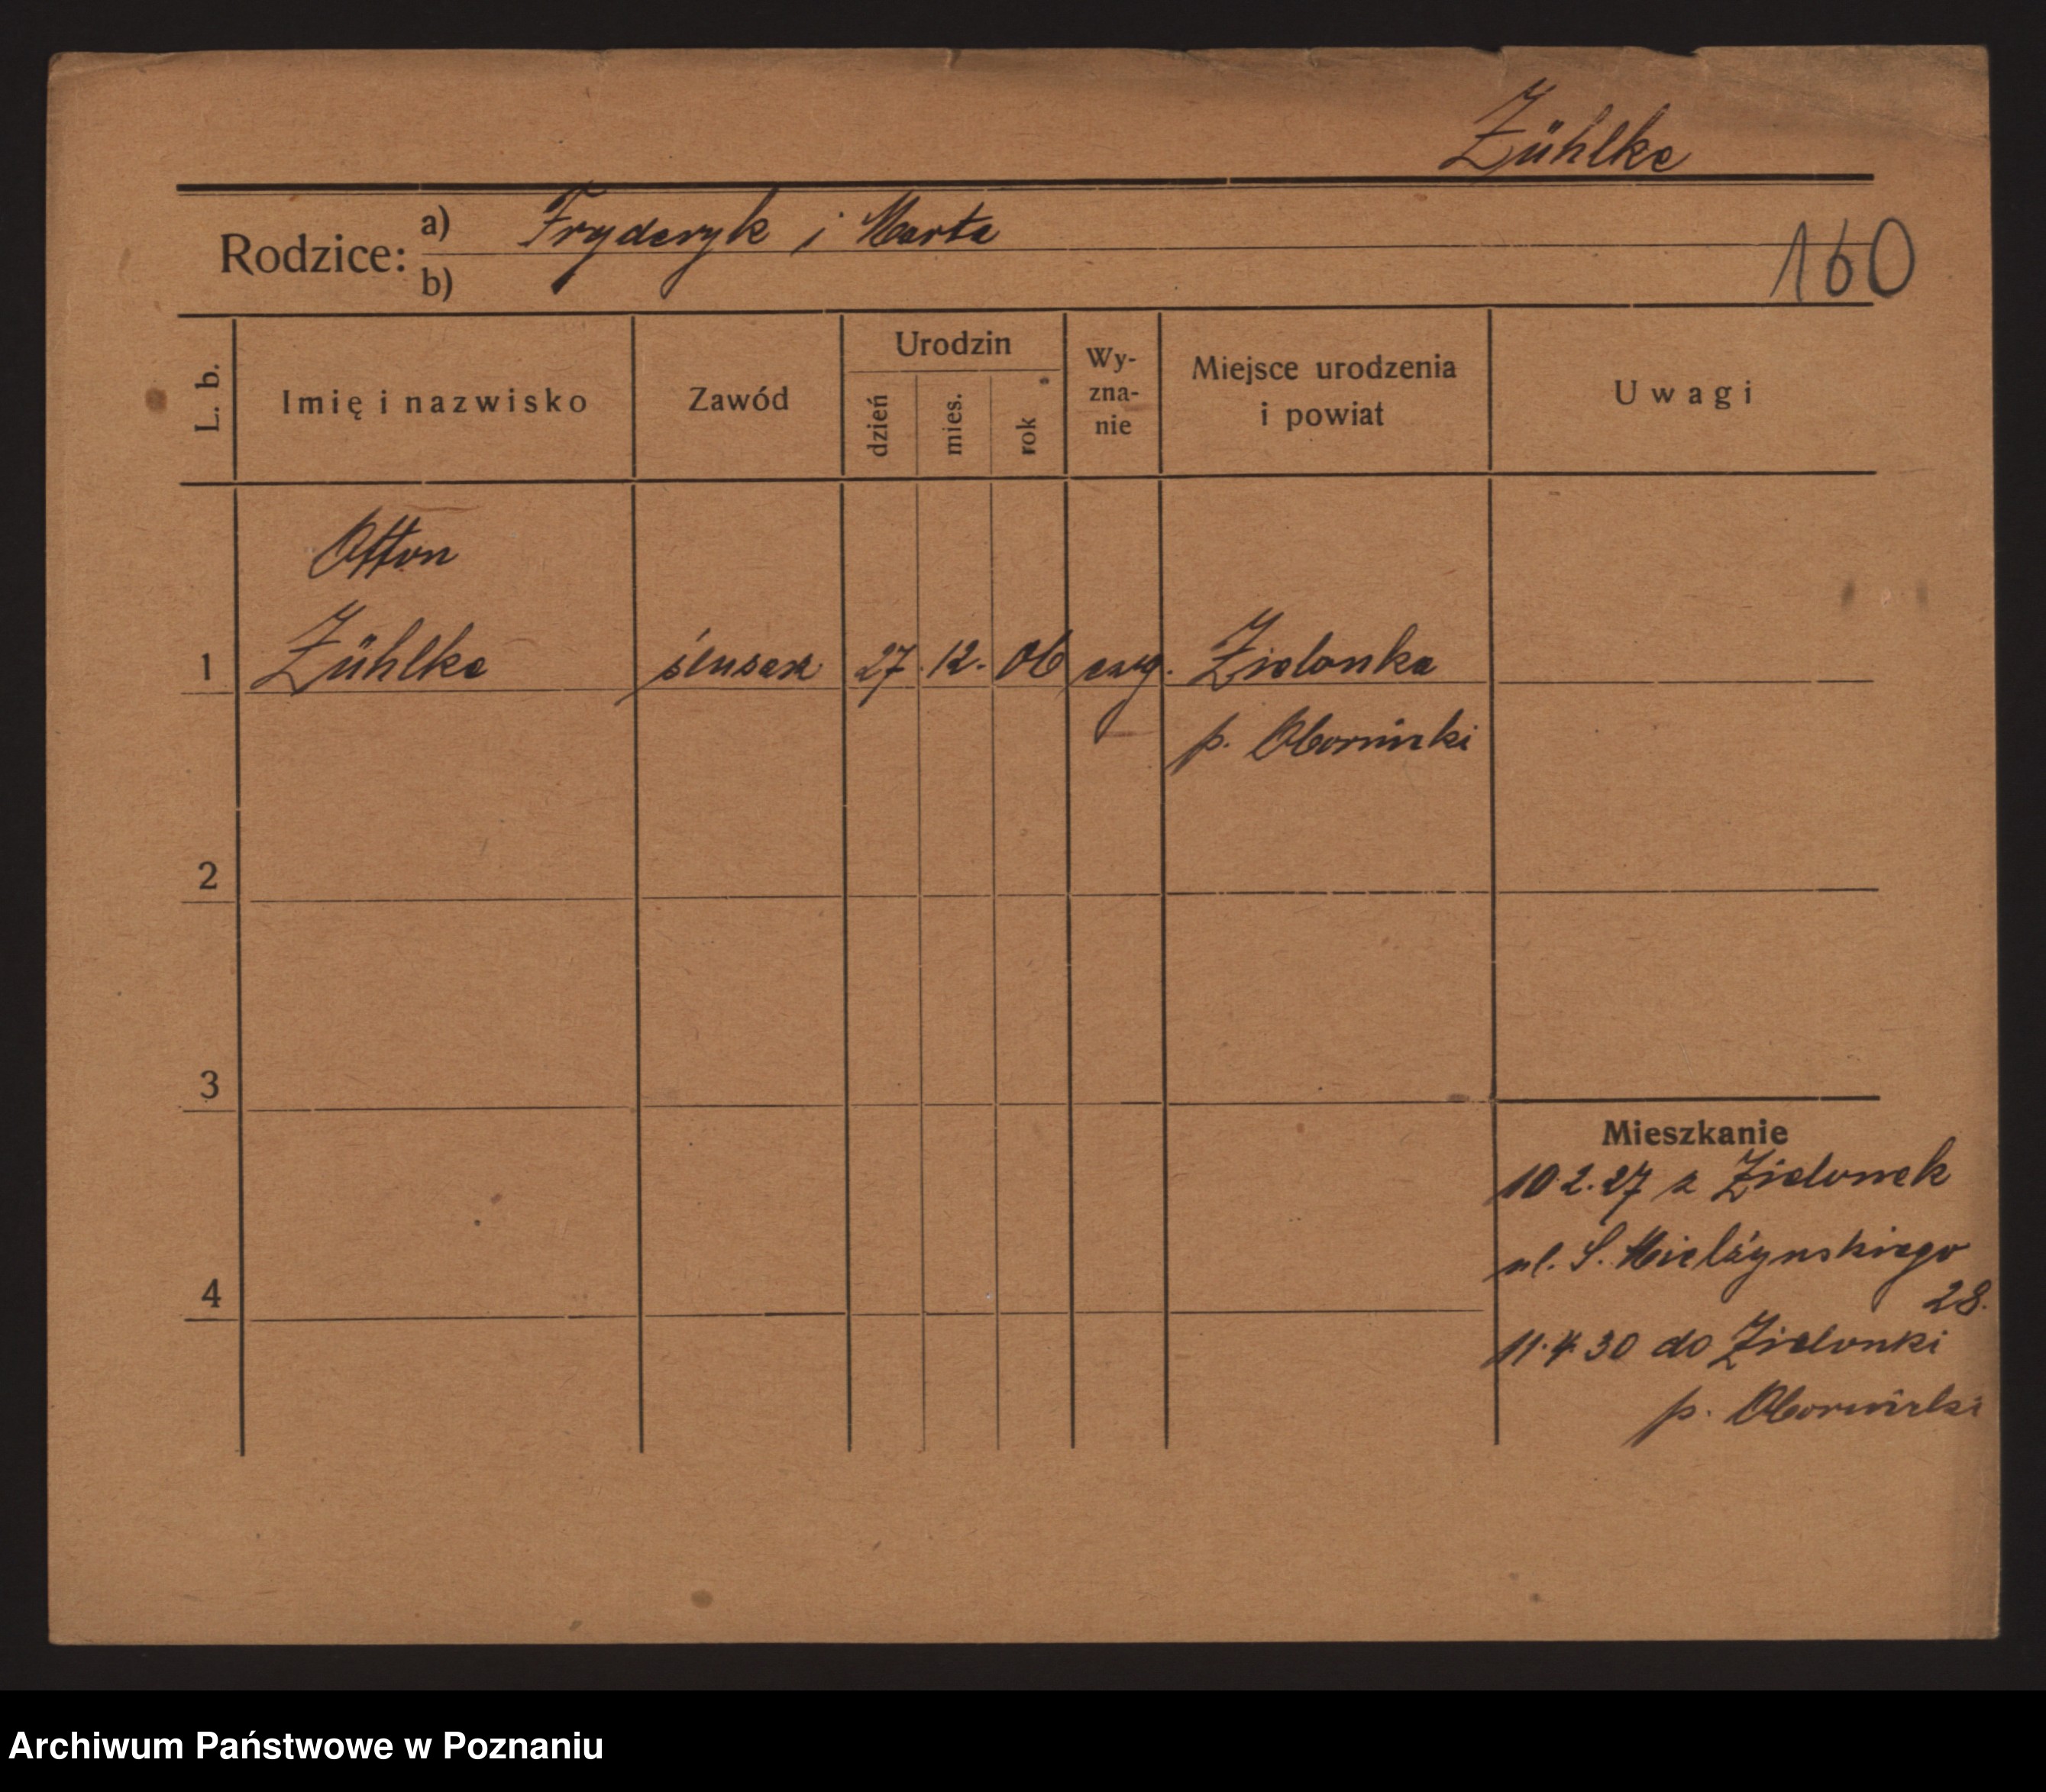 Zühlke
Rodzice: a) Fryderyk i Marta
b)
160
L. b.
Imię i nazwisko
Zawód
Urodzin
dzień
mies.
rok
Wy-
zna-
nie
Miejsce urodzenia
i powiat
Uwagi
Otton
1 Zühlke ślusarz 27. 12. 06 ewg. Zielonka
p. Obornicki
2
3
4
Mieszkanie
10.2.27 z Zielonek
ul. S. Mielżynskiego
28.
11.4.30 do Zielonki
p. Obornicki
Archiwum Państwowe w Poznaniu